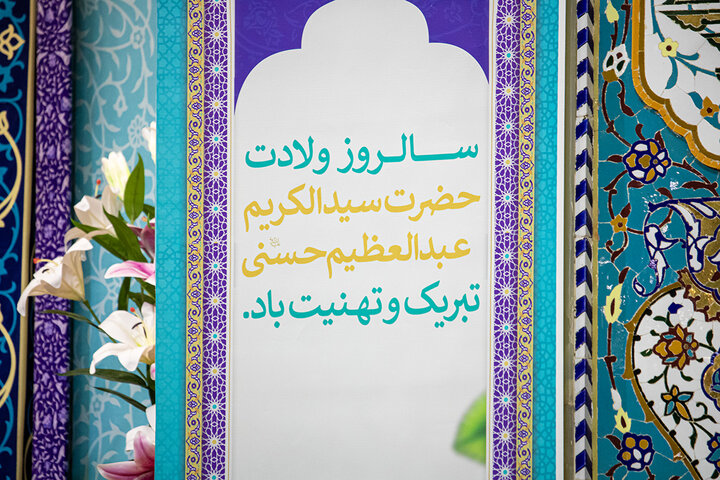 سالروز ولادت
حضرت سیدالکریم
عبدالعظیم حسنی
تبریک و تهنیت باد.